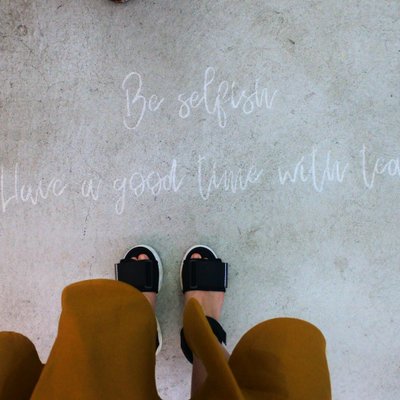 Be selfish
Have a good time with tea